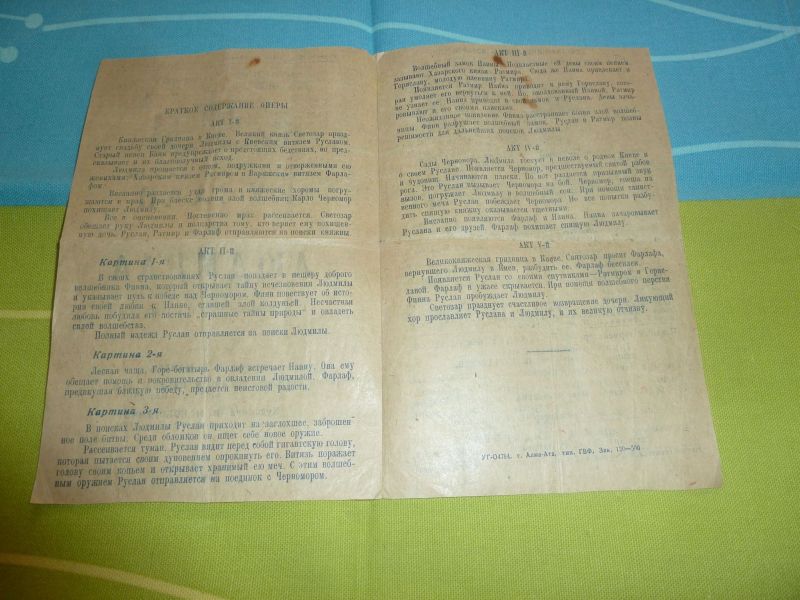 КРАТКОЕ СОДЕРЖАНИЕ ОПЕРЫ
АКТ I-й
Княжеская Гридница в Киеве. Великий князь Светозар празд-
нует свадьбу своей дочери Людмилы с Киевским витязем Русланом.
Старый певец Баян предупреждает о предстоящих бедствиях, но пред-
сказывает и их благополучный исход.
Людмила прощается с отцом, подружками и отверженными ею
женихами: Хазарским князем Ратмиром и Варяжским витязем Фарла-
фом.
Внезапно раздается удар грома и княжеские хоромы погру-
жаются в мрак. При блеске молнии злой волшебник Карло Черномор
похищает Людмилу.
Все в оцепенении. Постепенно мрак рассеивается. Светозар
обещает руку Людмилы и полцарства тому, кто вернет ему похищен-
ную дочь. Руслан, Ратмир и Фарлаф отправляются на поиски княжны
АКТ II-й
Картина 1-я
В своих странствованиях Руслан попадает в пещеру доброго
волшебника Финна, который открывает тайну исчезновения Людмилы
и указывает путь к победе над Черномором. Финн повествует об исто-
рии своей любви к Наине, ставшей злой колдуньей. Несчастная
любовь побудила его постичь „страшные тайны природы" и овладеть
силой волшебства.
Полный надежд Руслан отправляется на поиски Людмилы.
Картина 2-я
Лесная чаща. Горе-богатырь Фарлаф встречает Наину. Она ему
обещает помощь и покровительство в овладении Людмилой. Фарлаф,
предвкушая близкую победу, предается неистовой радости.
Картина 3-я.
В поисках Людмилы Руслан приходит на заглохшее, заброшен-
ное поле битвы. Среди обломков он ищет себе новое оружие.
Рассеивается туман. Руслан видит перед собой гигантскую голову,
которая пытается своим дуновением опрокинуть его. Витязь поражает
голову своим копьем и открывает хранимый ею меч. С этим волшеб-
ным оружием Руслан отправляется на поединок с Черномором.
АКТ III-й
Волшебный замок Наины. Подвластные ей девы своим пением
зазывают Хазарского князя Ратмира. Сюда же Наина привлекает и
Гориславу, молодую пленницу Ратмира.
Появляется Ратмир. Наина приводит к нему Гориславу, кото-
рая умоляет его вернуться к ней. Но, околдованный Наиной, Ратмир
не узнает ее. Наина приводит в свой замок и Руслана. Девы начи-
Неожиданное появление Финна расстраивает козни злой волшеб-
ницы. Финн разрушает волшебный замок. Руслан и Ратмир полны
решимости для дальнейших поисков Людмилы.
АКТ IV-й
Сады Черномора. Людмила тоскует в неволе о родном Киеве и
о своем Руслане. Появляется Черномор, предшествуемый свитой рабов
и чудовищ. Начинаются пляски. Но вот раздается призывный звук
рога. Это Руслан вызывает Черномора на бой. Черномор, спеша на
вызов, погружает Людмилу в волшебный сон. При помощи таинст-
венного меча Руслан побеждает Черномора. Но все попытки разбу-
дить спящую княжну оказываются тщетными.
Внезапно появляются Фарлаф и Наина. Наина зачаровывает
Руслана и его друзей. Фарлаф похищает спящую Людмилу.
АКТ V-й
Великокняжеская гридница в Киеве. Светозар просит Фарлафа,
вернувшего Людмилу в Киев, разбудить ее. Фарлаф бессилен.
Появляется Руслан со своими спутниками—Ратмиром и Горис-
лавой. Фарлаф в ужасе скрывается. При помощи волшебного перстня
Финна Руслан пробуждает Людмилу.
Светозар празднует счастливое возвращение дочери. Ликующий
хор прославляет Руслана и Людмилу, и их великую отчизну.
УГ-04764. г. Алма-Ата, тип. ГВФ, Зак.